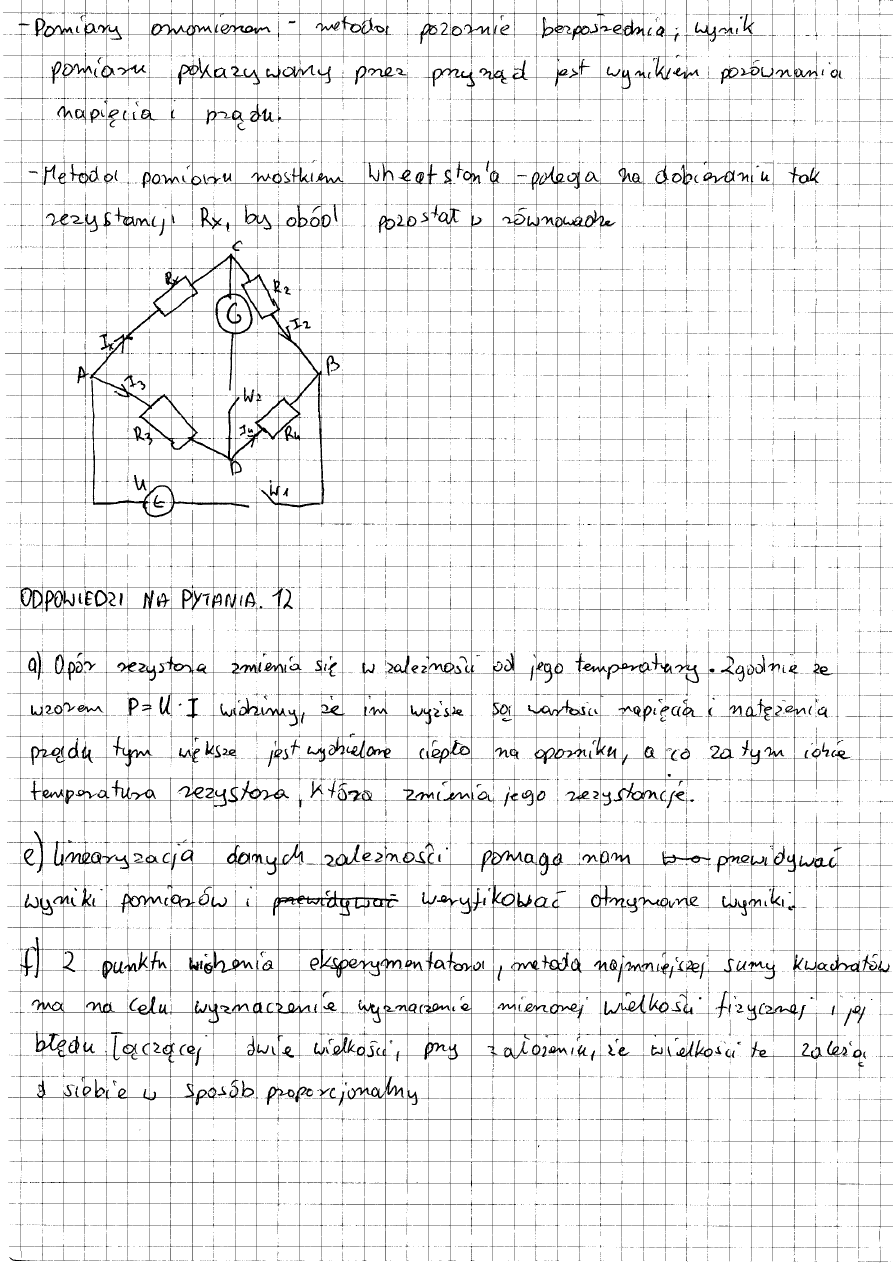 - Pomiary omomierzem - metoda pozornie bezpośrednia; wynik
pomiaru pokazywany przez przyrząd jest wynikiem porównania
napięcia i prądu.
- Metoda pomiaru mostkiem Wheatston'a - polega na dobieraniu tak
rezystancji Rx, by obód pozostał w równowadze
C
Rx
R2
G
I2
Ix
A
B
I3
W2
R3
I4
R4
D
U
E
W1
ODPOWIEDZI NA PYTANIA. 12
a) Opór rezystora zmienia się w zależności od jego temperatury. Zgodnie ze
wzorem P=U·I widzimy, że im wyższe są wartości napięcia i natężenia
prądu tym większe jest wydzielane ciepło na oporniku, a co za tym idzie
temperatura rezystora, która zmienia jego rezystancję.
e) Linearyzacja danych zależności pomaga nam przewidywać
wyniki pomiarów i przewidywać weryfikować otrzymane wyniki.
f) Z punktu widzenia eksperymentatora, metoda najmniejszej sumy kwadratów
ma na celu wyznaczenie wyznaczenie mierzonej wielkości fizycznej i jej
błędu łączącej dwie wielkości, przy założeniu, że wielkości te zależą
siebie w sposób proporcjonalny